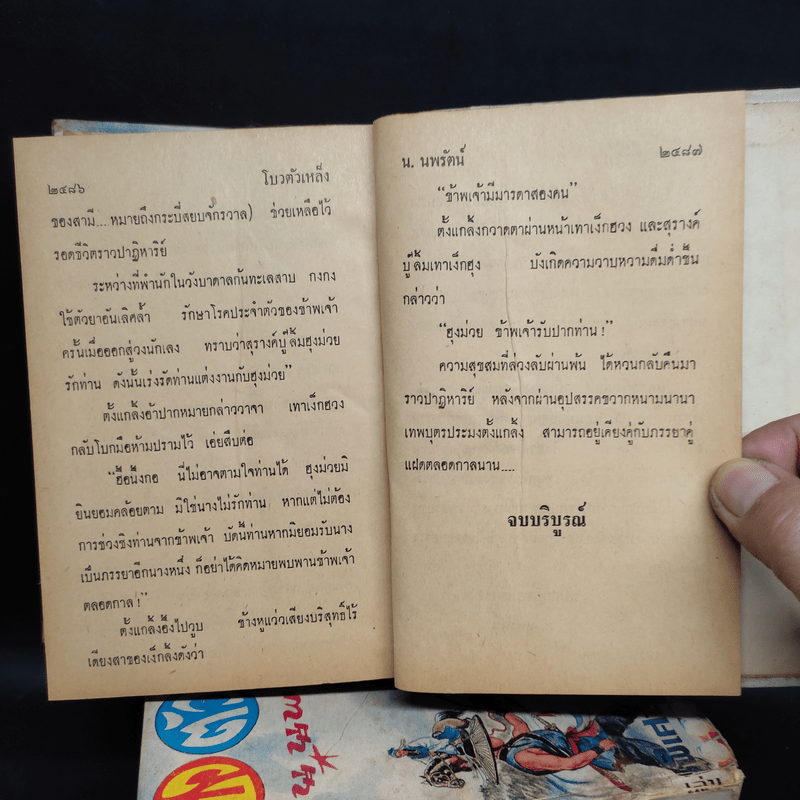 ๒๔๘๖ โบวตัวเหล็ง
ของสามี....หมายถึงกระบี่สยบจักรวาล) ช่วยเหลือไว้
รอดชีวิตราวปาฏิหาริย์
ระหว่างที่พำนักในวังบาดาลก้นทะเลสาบ กงกง
ใช้ตัวยาอันเลิศล้ำ รักษาโรคประจำตัวของข้าพเจ้า
ครั้นเมื่อออกสู่วงนักเลง ทราบว่าสุรางค์บู๊ลิ้มฮุงม่วย
รักท่าน ดังนั้นเร่งรัดท่านแต่งงานกับฮุงม่วย”
ตั้งแกล้งอ้าปากหมายกล่าววาจา เทาเง็กฮวง
กลับโบกมือห้ามปรามไว้ เอ่ยสืบต่อ
“ฮือนึ้งกอ นี่ไม่อาจตามใจท่านได้ ฮุงม่วยมิ
ยินยอมคล้อยตาม มิใช่นางไม่รักท่าน หากแต่ไม่ต้อง
การช่วงชิงท่านจากข้าพเจ้า บัดนี้ท่านหากมิยอมรับนาง
เป็นภรรยาอีกนางหนึ่ง ก็อย่าได้คิดหมายพบพานข้าพเจ้า
ตลอดกาล !”
ตั้งแกล้งอึ้งไปวูบ ข้างหูแว่วเสียงบริสุทธิ์ไร้
เดียงสาของเง็กล้งดังว่า
น. นพรัตน์ ๒๔๘๗
“ข้าพเจ้ามีมารดาสองคน”
ตั้งแกล้งกวาดตาผ่านหน้าเทาเง็กฮวง และสุรางค์
บู๊ลิ้มเทาเง็กฮุง บังเกิดความวาบหวามดื่มด่ำขึ้น
กล่าวว่า
“ฮุงม่วย ข้าพเจ้ารับปากท่าน !”
ความสุขสมที่ล่วงลับผ่านพ้น ได้หวนกลับคืนมา
ราวปาฏิหาริย์ หลังจากผ่านอุปสรรคขวากหนามนานา
เทพบุตรประมงตั้งแกล้ง สามารถอยู่เคียงคู่กับภรรยาคู่
แฝดตลอดกาลนาน....
จบบริบูรณ์